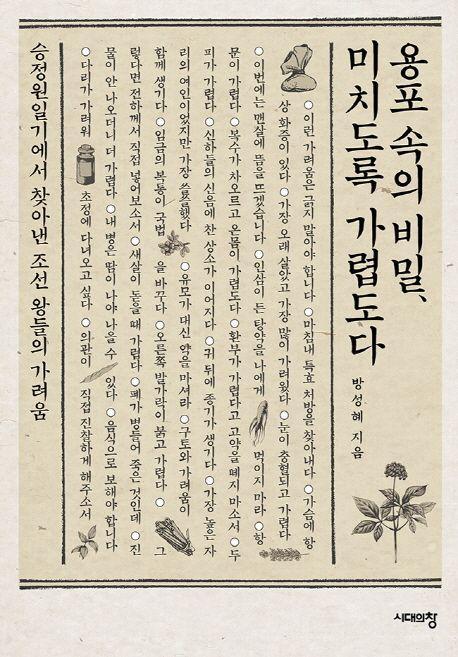 용포 속의 비밀,
미치도록 가렵도다
방성혜 지음
○이런 가려움은 긁지 말아야 합니다 ○마침내 특효 처방을 찾아내다 ○가슴에 항
상 화증이 있다 ○가장 오래 살았고 가장 많이 가려웠다 ○눈이 충혈되고 가렵다
○이번에는 맨살에 뜸을 뜨겠습니다 ○인삼이 든 탕약을 나에게 먹이지 마라 ○항
문이 가렵다 ○복수가 차오르고 온몸이 가렵도다 ○환부가 가렵다고 고약을 떼지 마소서 ○두
피가 가렵다 ○신하들의 신음에 찬 상소가 이어지다 ○귀 뒤에 종기가 생기다 ○가장 높은 자
리의 여인이었지만 가장 쓸쓸했다 ○유모가 대신 약을 마셔라 ○구토와 가려움이
함께 생기다 ○임금의 복통이 국법을 바꾸다 ○오른쪽 발가락이 붉고 가렵다 ○그
렇다면 전하께서 직접 넣어보소서 ○새살이 돋을 때 가렵다 ○폐가 병들어 죽은 것인데 ○진
물이 안 나오더니 더 가렵다 ○내 병은 땀이 나야 나을 수 있다 ○음식으로 보해야 합니다
○다리가 가려워 초정에 다녀오고 싶다 ○의관이 직접 진찰하게 해주소서
승정원일기에서 찾아낸 조선 왕들의 가려움
시대의창